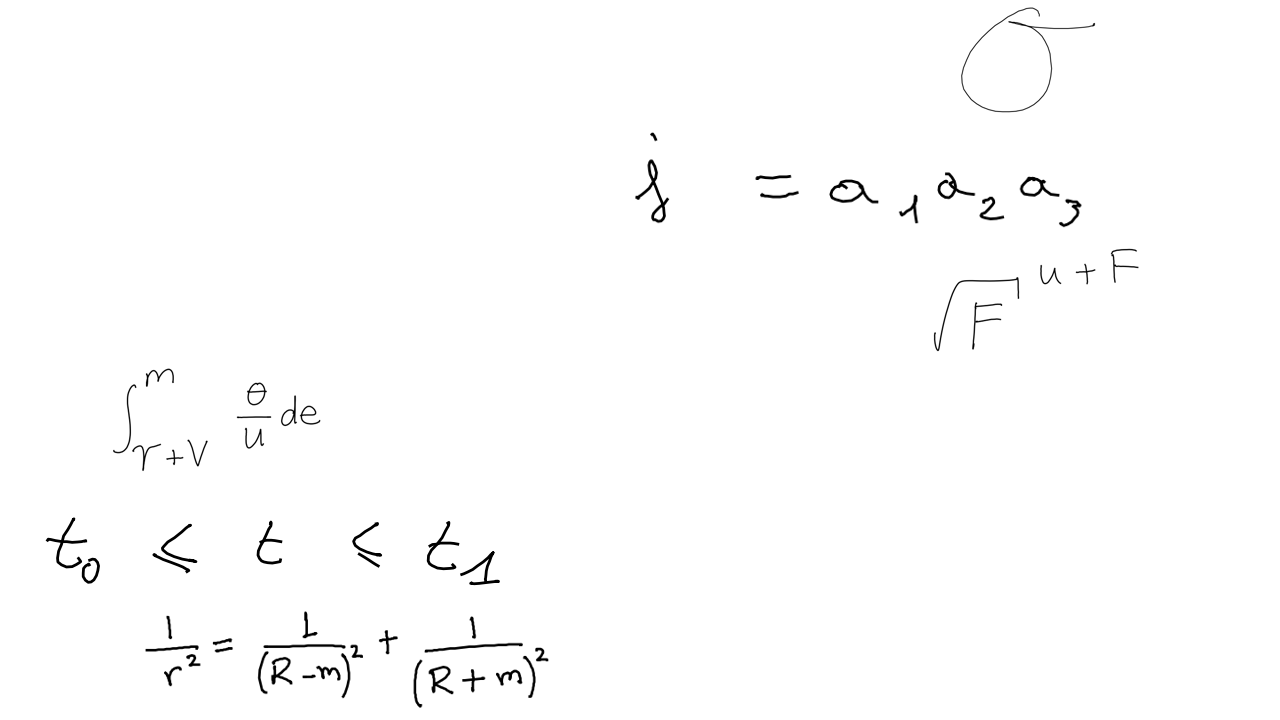 σ
j = a_1 a_2 a_3
\sqrt{F}^{u+F}
\int_{r+V}^{m} \frac{θ}{u} de
t_0 ≤ t ≤ t_1
\frac{1}{r^2} = \frac{1}{(R-m)^2} + \frac{1}{(R+m)^2}